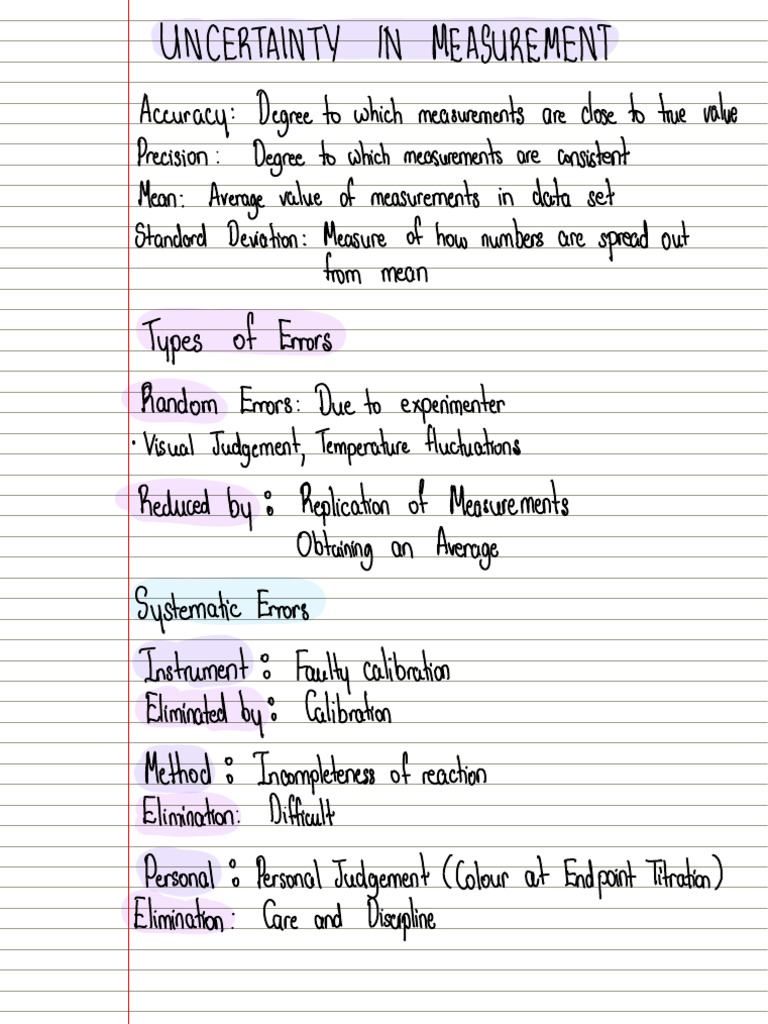 UNCERTAINTY IN MEASUREMENT
Accuracy: Degree to which measurements are close to true value
Precision: Degree to which measurements are consistent
Mean: Average value of measurements in data set
Standard Deviation: Measure of how numbers are spread out
from mean
Types of Errors
Random Errors: Due to experimenter
· Visual Judgement, Temperature fluctuations
Reduced by: Replication of Measurements
Obtaining an Average
Systematic Errors
Instrument: Faulty calibration
Eliminated by: Calibration
Method: Incompleteness of reaction
Elimination: Difficult
Personal: Personal Judgement (Colour at Endpoint Titration)
Elimination: Care and Discipline